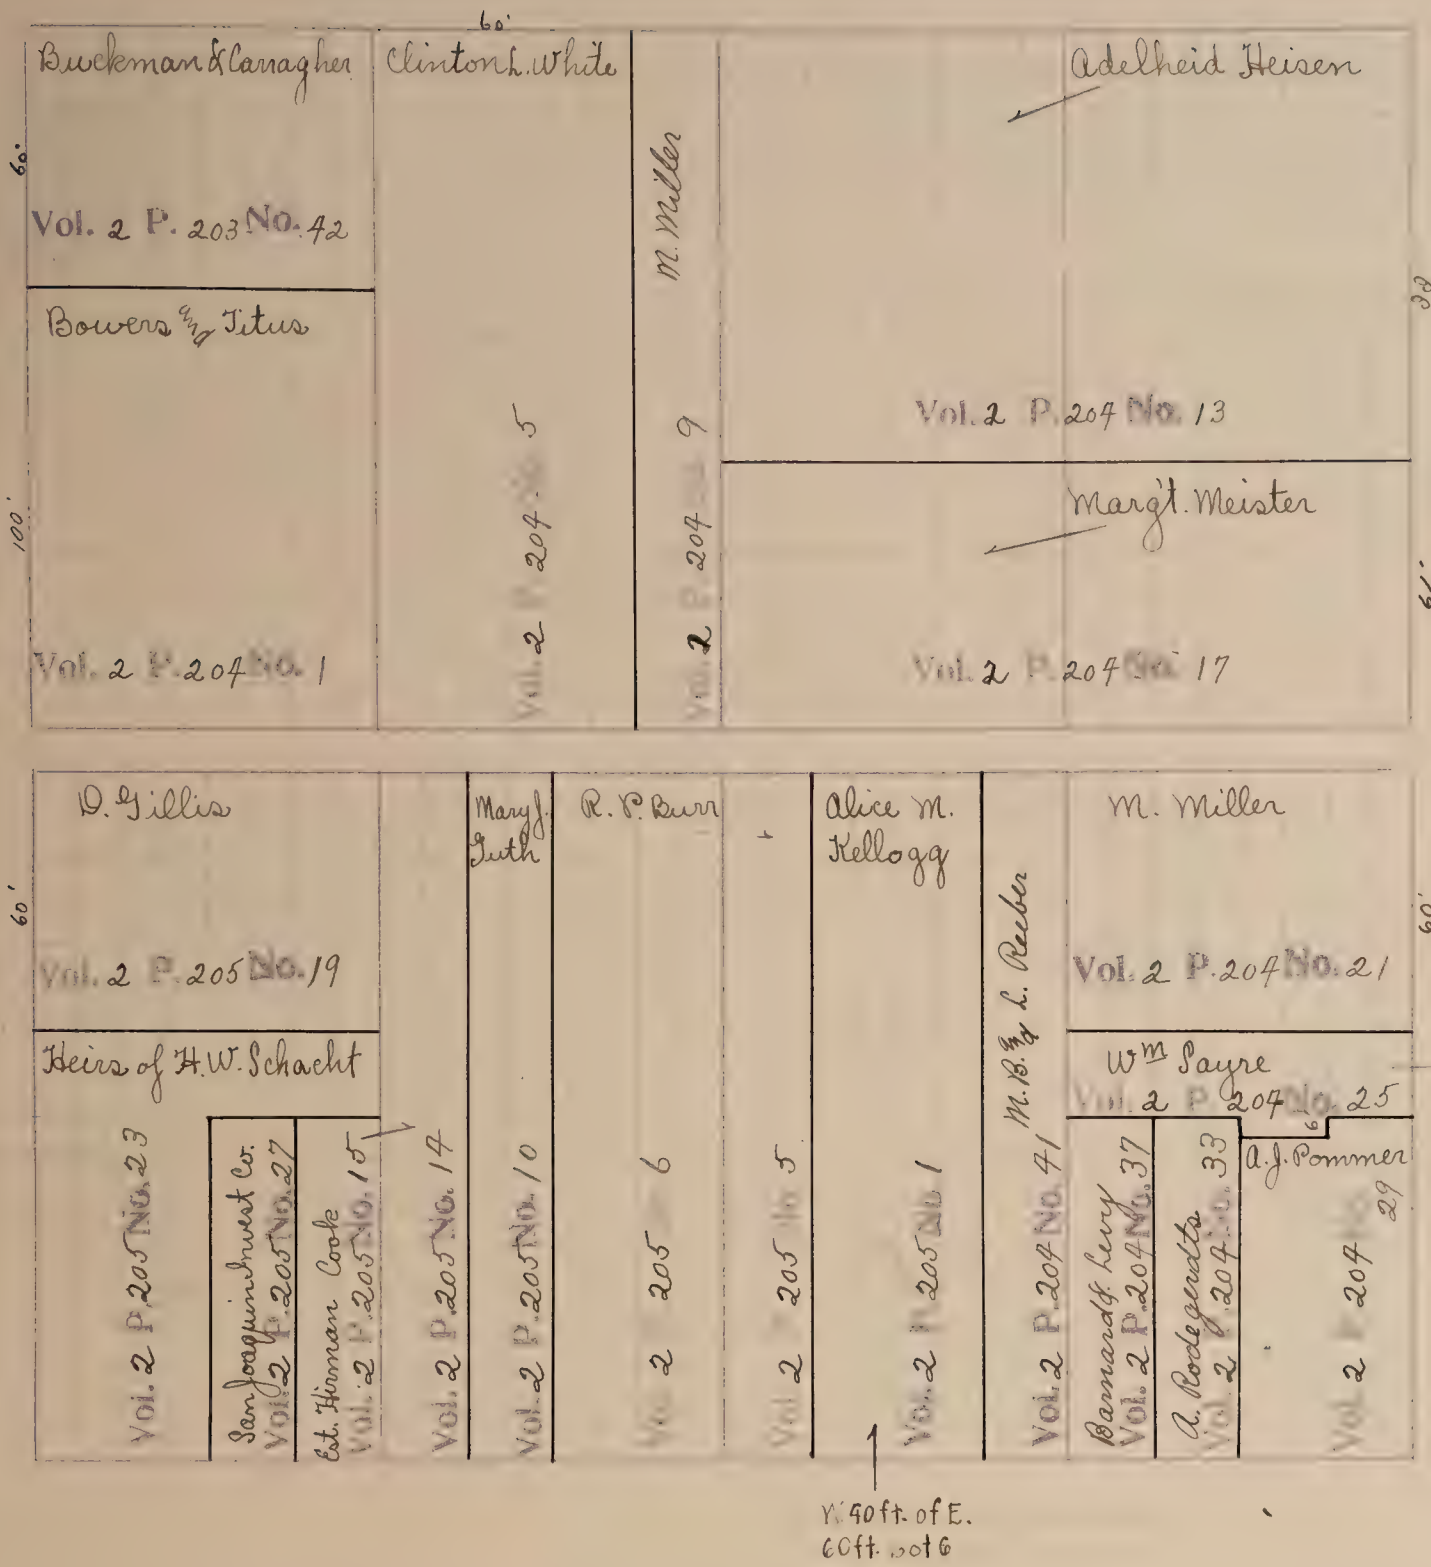 60'
Buckman & Carragher
60'
Vol. 2 P. 203 No. 42
Clinton L. White
Vol. 2 P. 204 No. 5
M. Miller
Vol. 2 P. 204 9
Adelheid Heisen
Vol. 2 P. 204 No. 13
Bowers and Titus
100'
Vol. 2 P. 204 No. 1
Marg't. Meister
61'
Vol. 2 P. 204 No. 17
D. Gillis
60'
Vol. 2 P. 205 No. 19
Heirs of H. W. Schacht
Vol. 2 P. 205 No. 23
San Joaquin Invest Co.
Vol. 2 P. 205 No. 27
Est. Hirman Cook
Vol. 2 P. 205 No. 15
Vol. 2 P. 205 No. 14
Mary J.
Guth
Vol. 2 P. 205 No. 10
R. P. Burr
Vol. 2 205 6
Vol. 2 P. 205 No. 5
Alice M.
Kellogg
Vol. 2 P. 205 No. 1
M. B. and L. Reeber
Vol. 2 P. 204 No. 41
M. Miller
60'
Vol. 2 P. 204 No. 21
Wm Sayre
Vol. 2 P. 204 No. 25
6'
Barnard & Levy
Vol. 2 P. 204 No. 37
A. Rodegerdts
Vol. 2 P. 204 No. 33
A. J. Pommer
Vol. 2 P. 204 No. 29
W. 40 ft. of E.
60 ft. Lot 6